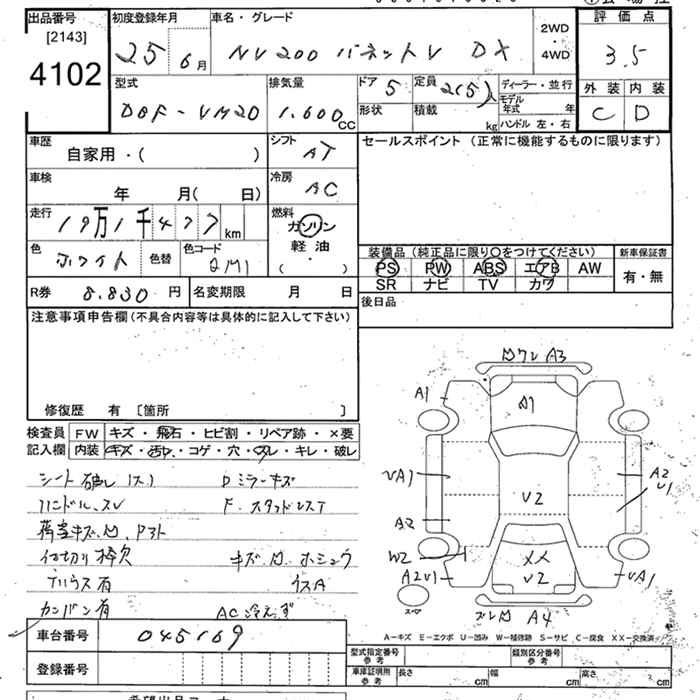 出品番号 初度登録年月 車名・グレード 2WD 評価点
[2143] 25 6月 NV200 バネットV DX 4WD 3.5
4102
型式 排気量 ドア 5 定員 2(5)人 ディーラー・並行 外装 内装
DBF-VM20 1.600cc 形状 積載 kg モデル年式 年 C D
ハンドル 左・右
車歴 自家用・( ) シフト AT セールスポイント(正常に機能するものに限ります)
車検 年 月( 日) 冷房 AC
走行 19万1千477km 燃料 ガソリン
軽油
( )
色 ホワイト 色替 色コード QM1
装備品(純正品に限り○をつけてください) 新車保証書
PS PW ABS エアB AW 有・無
SR ナビ TV カワ
R券 8.830円 名変期限 月 日 後日品
注意事項申告欄(不具合内容等は具体的に記入して下さい)
修復歴 有 [箇所 ]
検査員 FW キズ・飛石・ヒビ割・リペア跡・×要
記入欄 内装 キズ・汚レ・コゲ・穴・スレ・キレ・破レ
シート破レ(大) Dミラーキズ
ハンドルスレ F.スタッドレスT
仕切り枠欠 キズ.凹.ホシュウ
カンバン有 AC冷えず
A3
A1
A1
UA1 A2
U1
U2
A2
W2 XX
A2U1 U2 UA1
スペア
A4
A-キズ E-エクボ U-凹み W-補修跡 S-サビ C-腐食 XX-交換済
車台番号 045169
登録番号
型式指定番号 参考 類別区分番号 参考
車庫証明用 参考 長さ cm 幅 cm 高さ cm